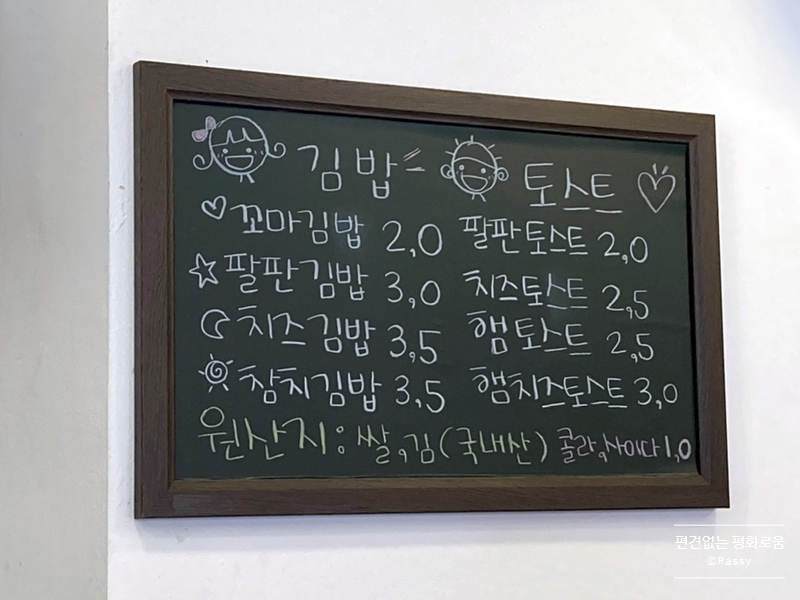 김밥
꼬마김밥 2,0
팔판김밥 3,0
치즈김밥 3,5
참치김밥 3,5
토스트
팔판토스트 2,0
치즈토스트 2,5
햄토스트 2,5
햄치즈토스트 3,0
원산지: 쌀,김(국내산)
콜라,사이다 1,0
편견없는 평화로움
©Rassy